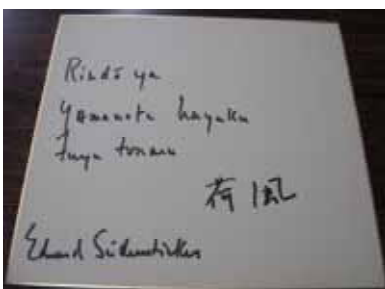 Rindō ya
yamanote hayaku
fuyu tonaru
荷風
Edward Seidensticker